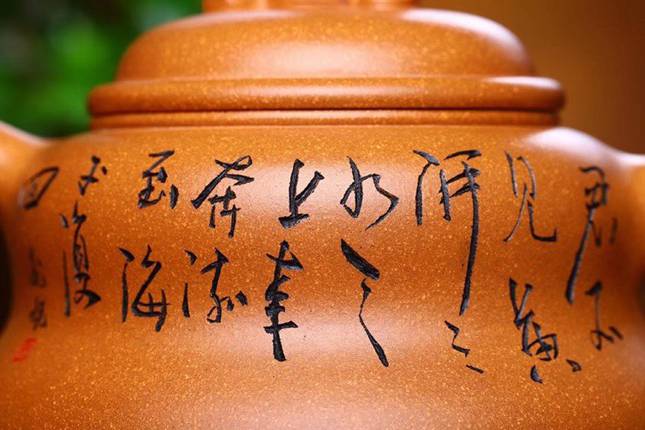 君不
见黄
河之
水天
上来
奔流
到海
不復
回